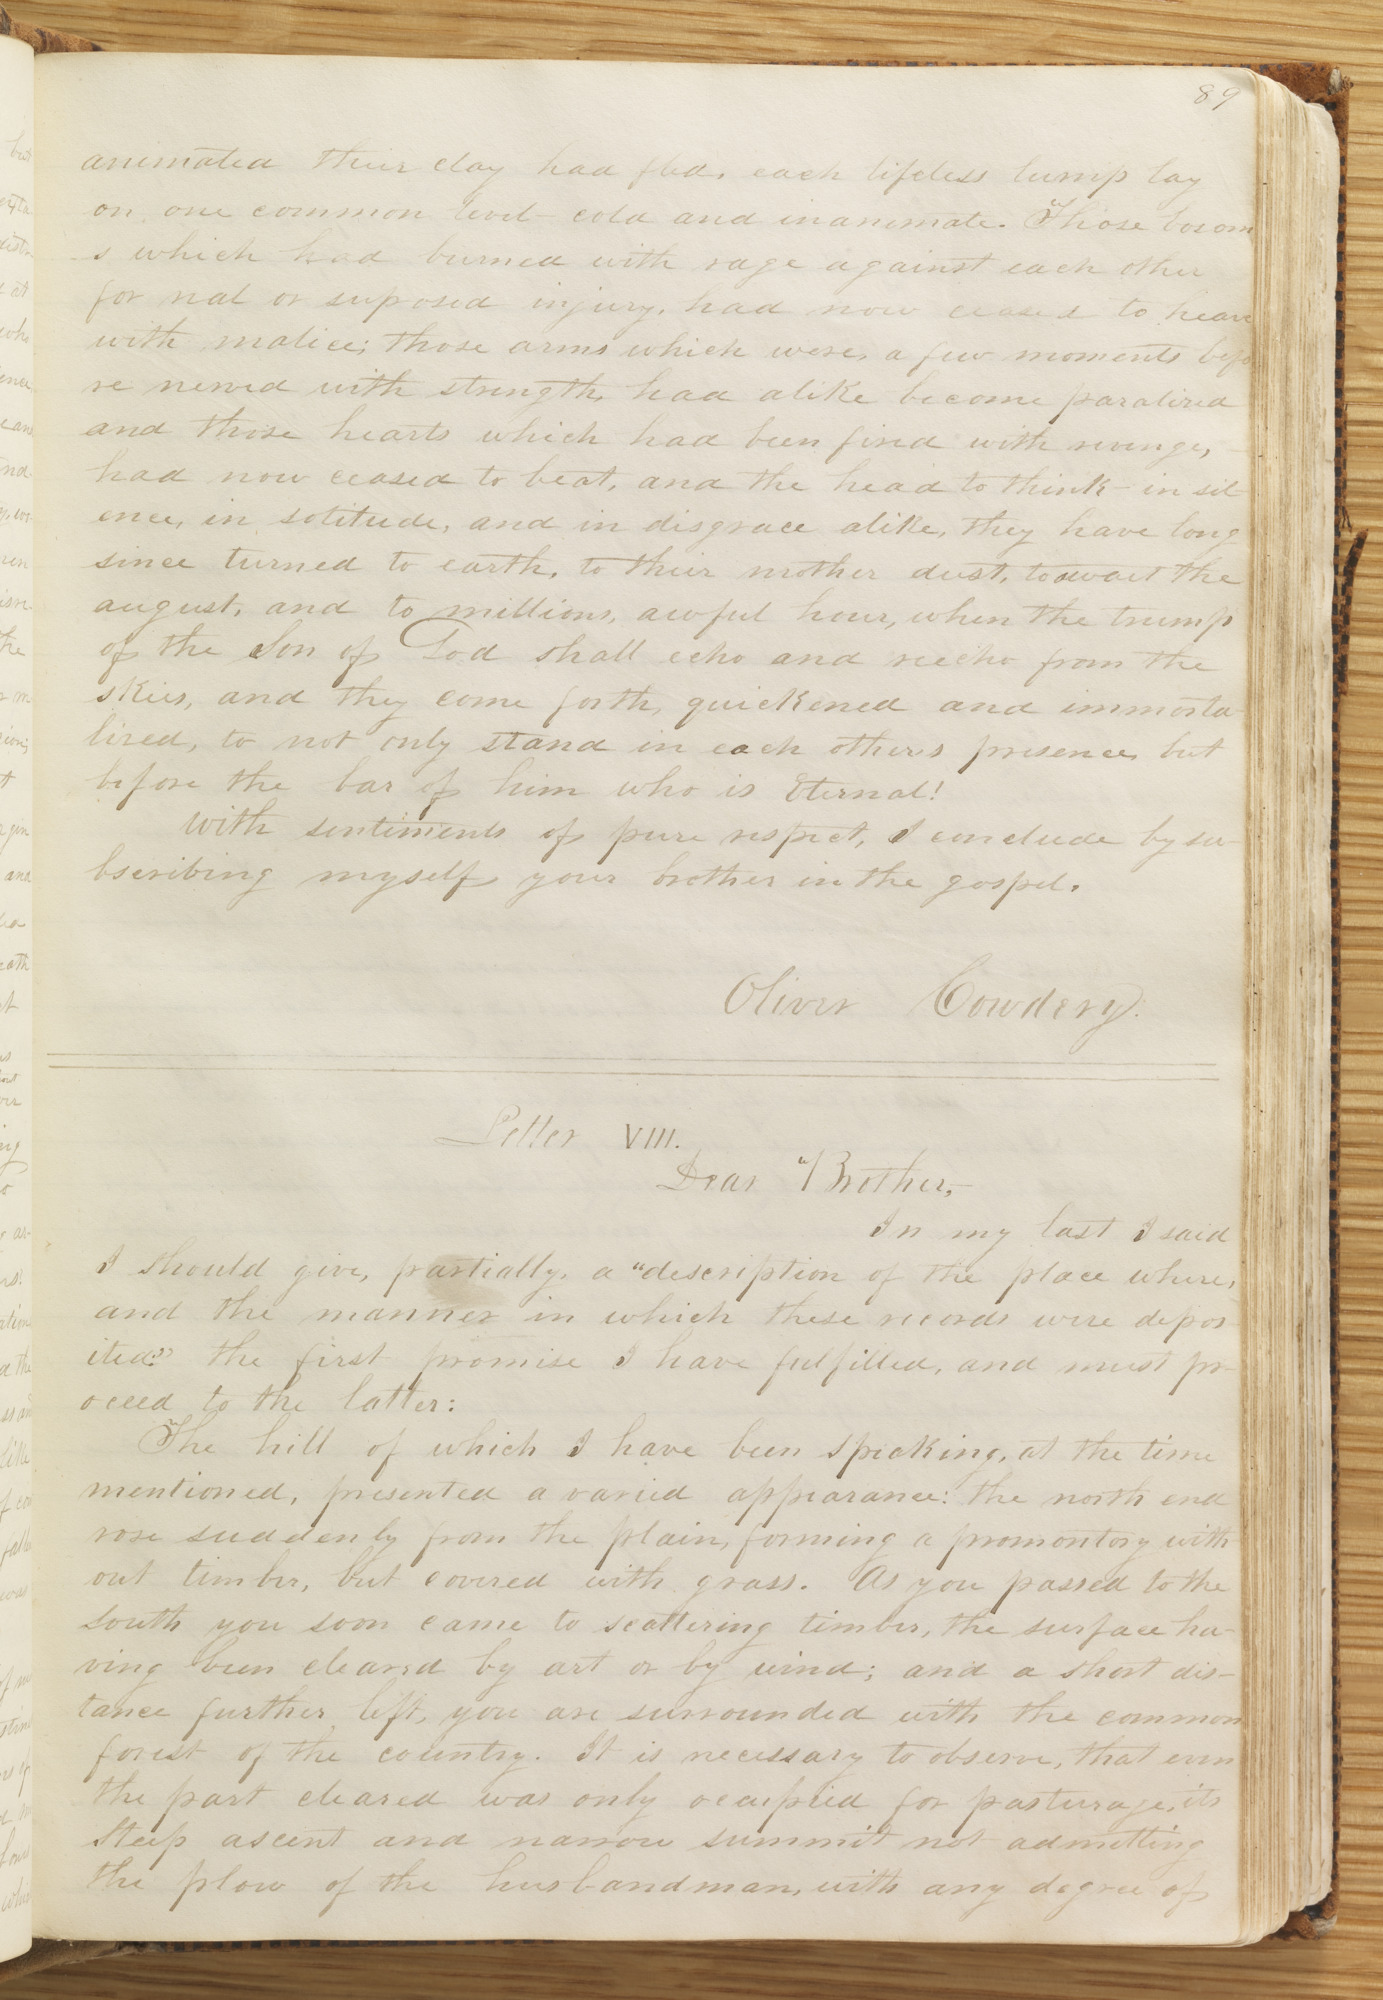 89
animated their clay had fled, each lifeless lump lay
on one common level— cold and inanimate. Those bosom
s which had burned with rage against each other
for real or suposed injury, had now ceased to heave
with malice; those arms which were, a few moments befo
re nerved with strength, had alike become paralized
and those hearts which had been fired with revenge,
had now ceased to beat, and the head to think— in sil
ence, in solitude, and in disgrace alike, they have long
since turned to earth, to their mother dust, to await the
august, and to millions, awful hour, when the trump
of the Son of God shall echo and reecho from the
skies, and they come forth, quickened and immorta-
lized, to not only stand in each other's presence, but
before the bar of him who is Eternal!
With sentiments of pure respect, I conclude by su-
bscribing myself your brother in the gospel.
Oliver Cowdery.
Letter VIII.
Dear Brother,—
In my last I said
I should give, partially, a "description of the place where,
and the manner in which these records were depos
ited:" the first promise I have fulfilled, and must pr-
oceed to the latter:
The hill of which I have been speaking, at the time
mentioned, presented a varied appearance: the north end
rose suddenly from the plain, forming a promontory with
out timber, but covered with grass. As you passed to the
South you soon came to scattering timber, the surface ha-
ving been cleared by art or by wind; and a short dis-
tance further left, you are surrounded with the common
forest of the country. It is necessary to observe, that even
the part cleared was only occupied for pasturage, its
Steep ascent and narrow summit not admitting
the plow of the husbandman, with any degree of